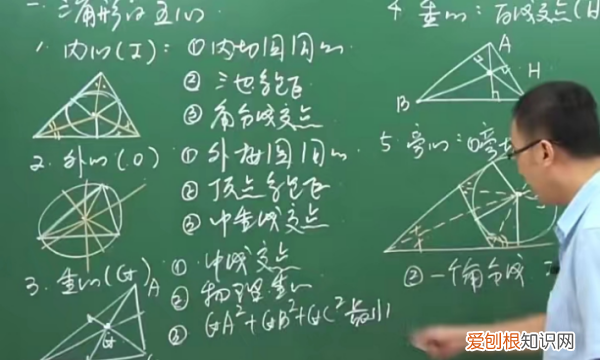 一. 三角形的五心
1. 内心(I): ① 内切圆圆心
② 三边等距
③ 角分线交点
2. 外心(O) ① 外接圆圆心
② 顶点等距
③ 中垂线交点
3. 重心(G) ① 中线交点
② 物理重心
③ GA²+GB²+GC² 最小
4. 垂心: 高线交点(H
A
H
B
5. 旁心: ①旁切
② 一个角分线
A
G
爱刨根知识网
www.baogenzhishi.com